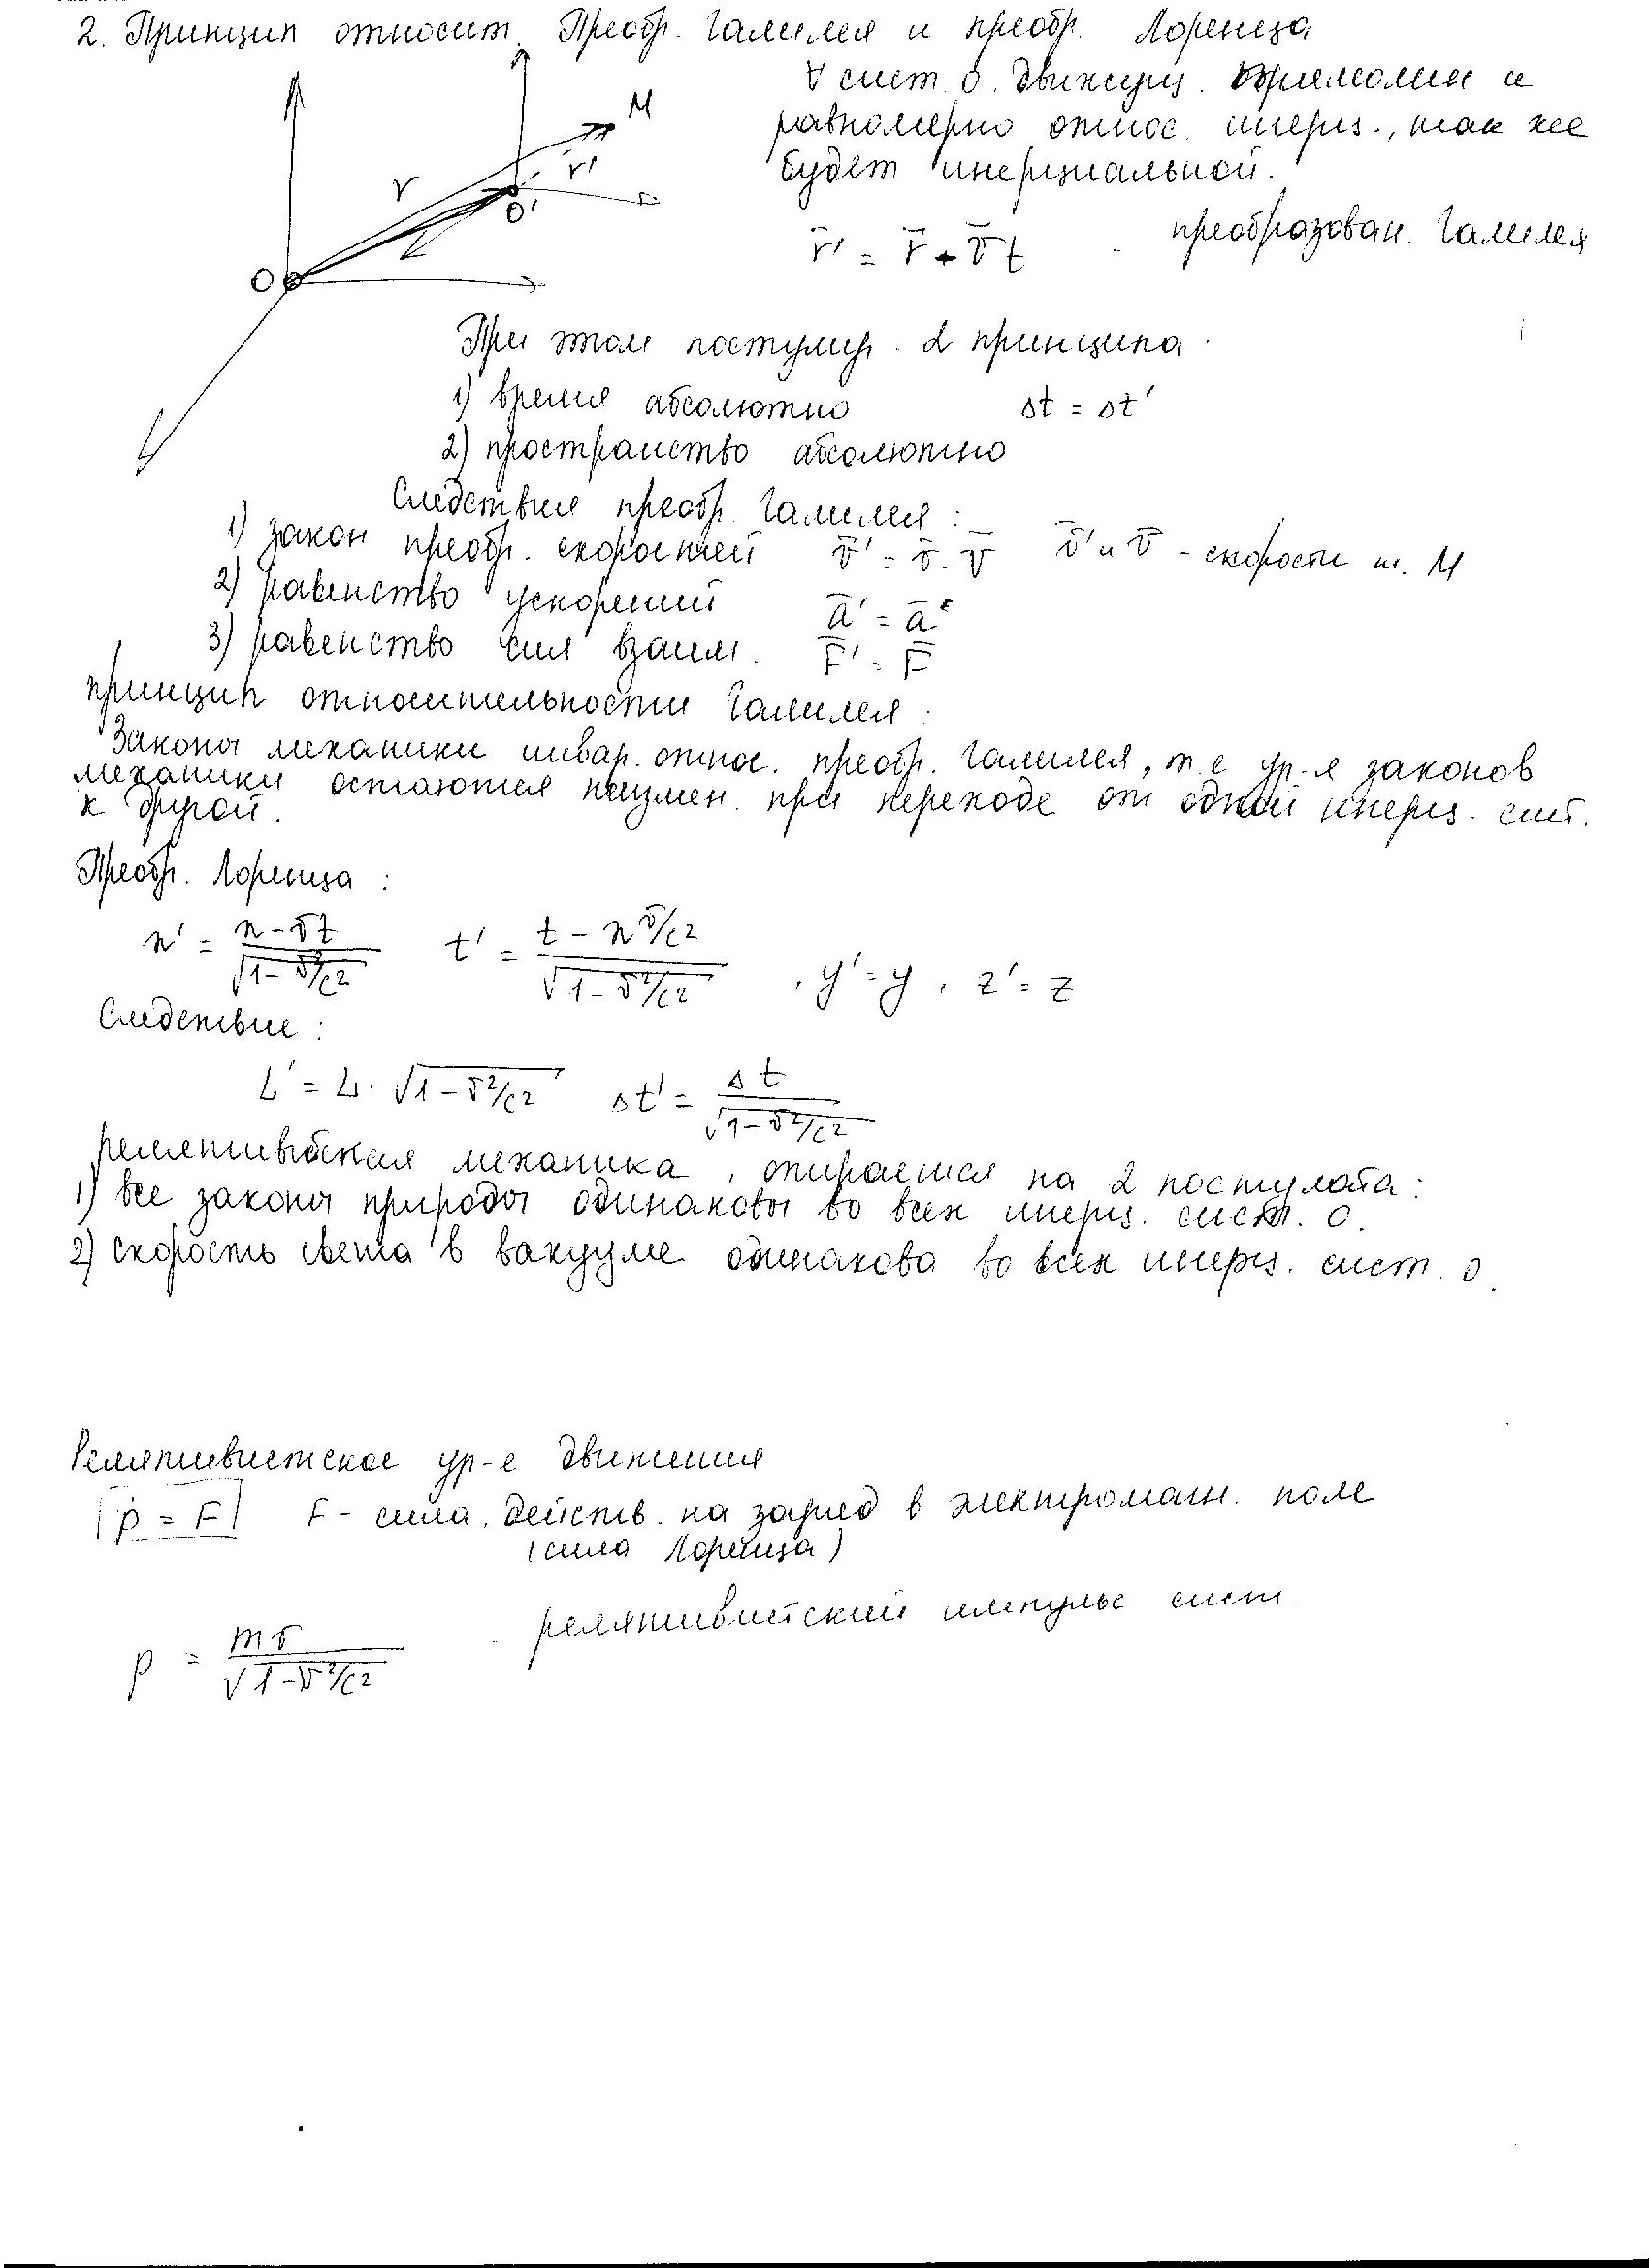 2. Принцип относит. Преобр. Галилея и преобр. Лоренца
∀ сист. О. движущ. прямолин и
равномерно относ. инерц., так же
будет инерциальной.
M
r
r'
O'
O
r̄' = r̄ - v̄t преобразован. Галилея
При этом постулир. 2 принципа
1) время абсолютно Δt = Δt'
2) пространство абсолютно
Следствия преобр. Галилея:
1) закон преобр. скоростей v̄' = v̄ - V̄ v̄' и v̄ - скорости т. M
2) равенство ускорений ā' = ā
3) равенство сил взаим. F̄' = F̄
принцип относительности Галилея:
Законы механики инвар. относ. преобр. Галилея, т.е ур-я законов
механики остаются неизмен. при переходе от одной инерц. сист.
к другой.
Преобр. Лоренца:
x' = (x - vt)/√(1 - v²/c²) t' = (t - xv/c²)/√(1 - v²/c²) , y' = y , z' = z
Следствие:
L' = L · √(1 - v²/c²) Δt' = Δt/√(1 - v²/c²)
релятивистская механика, опирается на 2 постулата:
1) все законы природы одинаковы во всех инерц. сист. О.
2) скорость света в вакууме одинакова во всех инерц. сист. О.
Релятивистское ур-е движения
ṗ = F F - сила, действ. на заряд в электромагн. поле
(сила Лоренца)
p = mv/√(1 - v²/c²) релятивистский импульс сист.